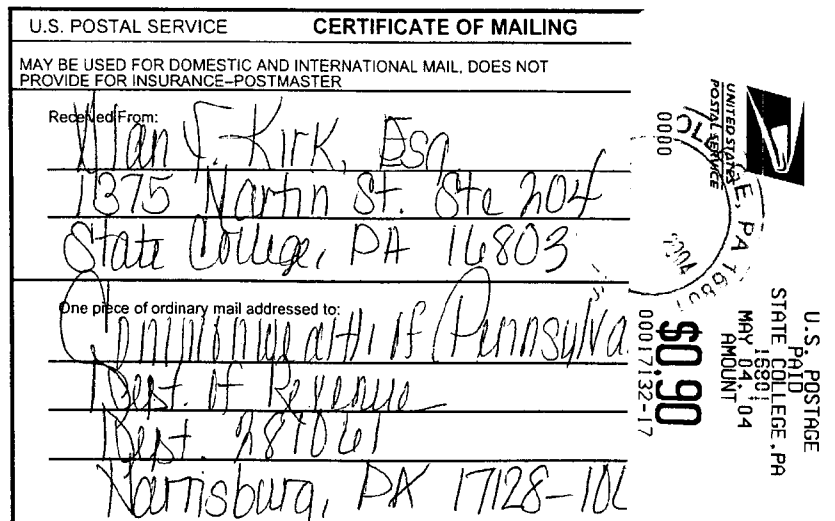 U.S. POSTAL SERVICE CERTIFICATE OF MAILING
MAY BE USED FOR DOMESTIC AND INTERNATIONAL MAIL, DOES NOT
PROVIDE FOR INSURANCE–POSTMASTER
Received From:
Alan F. Kirk, Esq
1375 Martin St. Ste 204
State College, PA 16803
One piece of ordinary mail addressed to:
Commonwealth of Pennsylva
Dept. of Revenue
Dept. 281061
Harrisburg, PA 17128-106
UNITED STATES
POSTAL SERVICE
0000
E, PA 16801
2004
U.S. POSTAGE
PAID
STATE COLLEGE, PA
16801
MAY 04, 04
AMOUNT
$0.90
00017132-17